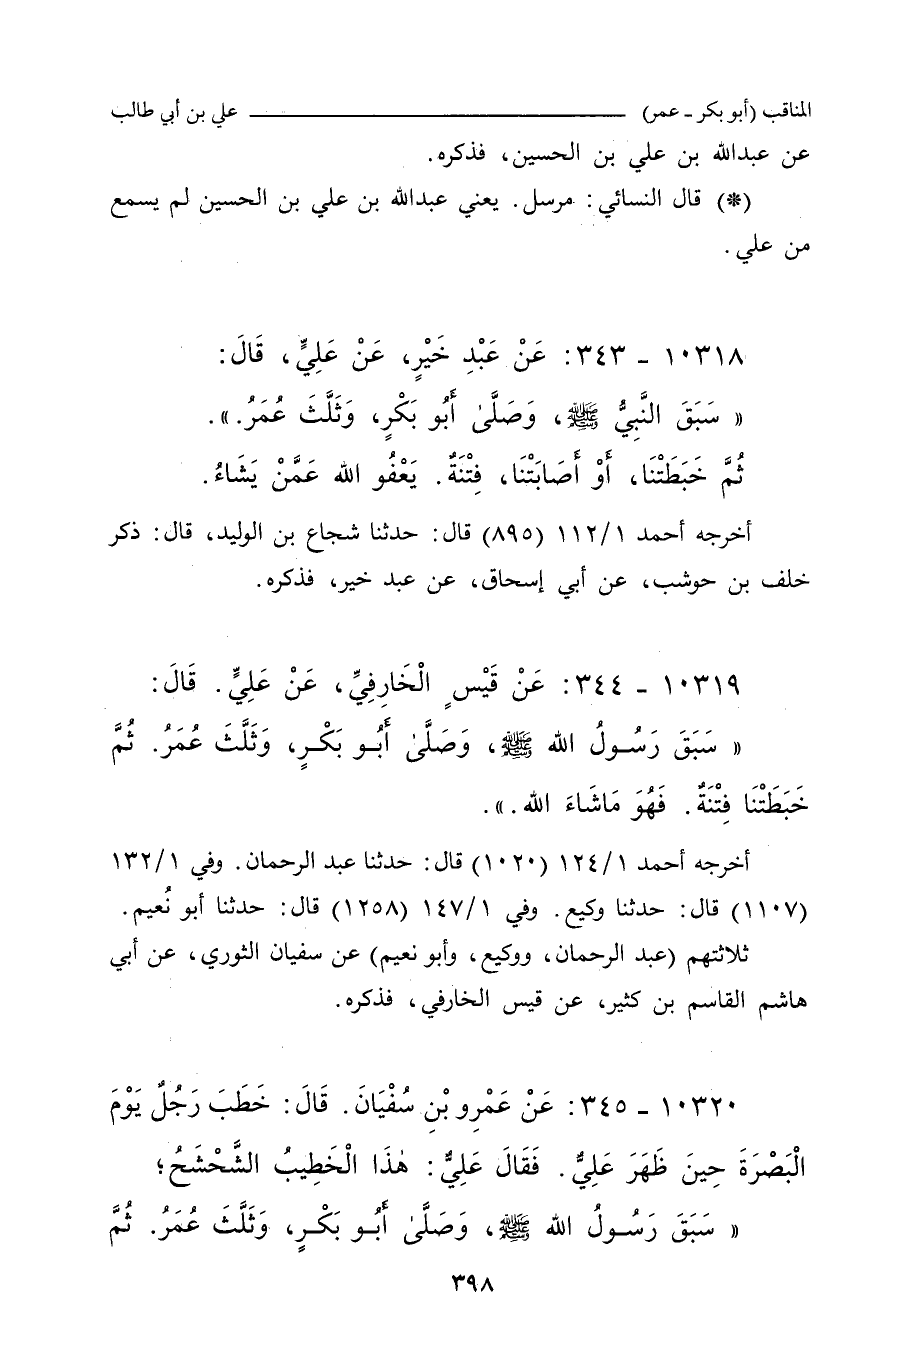 المناقب (أبو بكر ـ عمر) ــــــــــــــــ علي بن أبي طالب
عن عبدالله بن علي بن الحسين، فذكره.
(*) قال النسائي: مرسل. يعني عبدالله بن علي بن الحسين لم يسمع
من علي.
١٠٣١٨ ـ ٣٤٣: عَنْ عَبْدِ خَيْرٍ، عَنْ عَلِيٍّ، قَالَ:
« سَبَقَ النَّبِيُّ ﷺ، وَصَلَّىٰ أَبُو بَكْرٍ، وَثَلَّثَ عُمَرُ.».
ثُمَّ خَبَطَتْنَا، أَوْ أَصَابَتْنَا، فِتْنَةٌ. يَعْفُو الله عَمَّنْ يَشَاءُ.
أخرجه أحمد ١١٢/١ (٨٩٥) قال: حدثنا شجاع بن الوليد، قال: ذكر
خلف بن حوشب، عن أبي إسحاق، عن عبد خير، فذكره.
١٠٣١٩ ـ ٣٤٤: عَنْ قَيْسٍ الْخَارِفِيِّ، عَنْ عَلِيٍّ. قَالَ:
« سَبَقَ رَسُولُ الله ﷺ، وَصَلَّىٰ أَبُو بَكْرٍ، وَثَلَّثَ عُمَرُ. ثُمَّ
خَبَطَتْنَا فِتْنَةٌ. فَهُوَ مَاشَاءَ الله.».
أخرجه أحمد ١٢٤/١ (١٠٢٠) قال: حدثنا عبد الرحمان. وفي ١٣٢/١
(١١٠٧) قال: حدثنا وكيع. وفي ١٤٧/١ (١٢٥٨) قال: حدثنا أبو نُعيم.
ثلاثتهم (عبد الرحمان، ووكيع، وأبو نعيم) عن سفيان الثوري، عن أبي
هاشم القاسم بن كثير، عن قيس الخارفي، فذكره.
١٠٣٢٠ ـ ٣٤٥: عَنْ عَمْرِو بْنِ سُفْيَانَ. قَالَ: خَطَبَ رَجُلٌ يَوْمَ
الْبَصْرَةَ حِينَ ظَهَرَ عَلِيٌّ. فَقَالَ عَلِيٌّ: هٰذَا الْخَطِيبُ الشَّحْشَحُ؛
« سَبَقَ رَسُولُ الله ﷺ، وَصَلَّىٰ أَبُو بَكْرٍ، وَثَلَّثَ عُمَرُ. ثُمَّ
٣٩٨